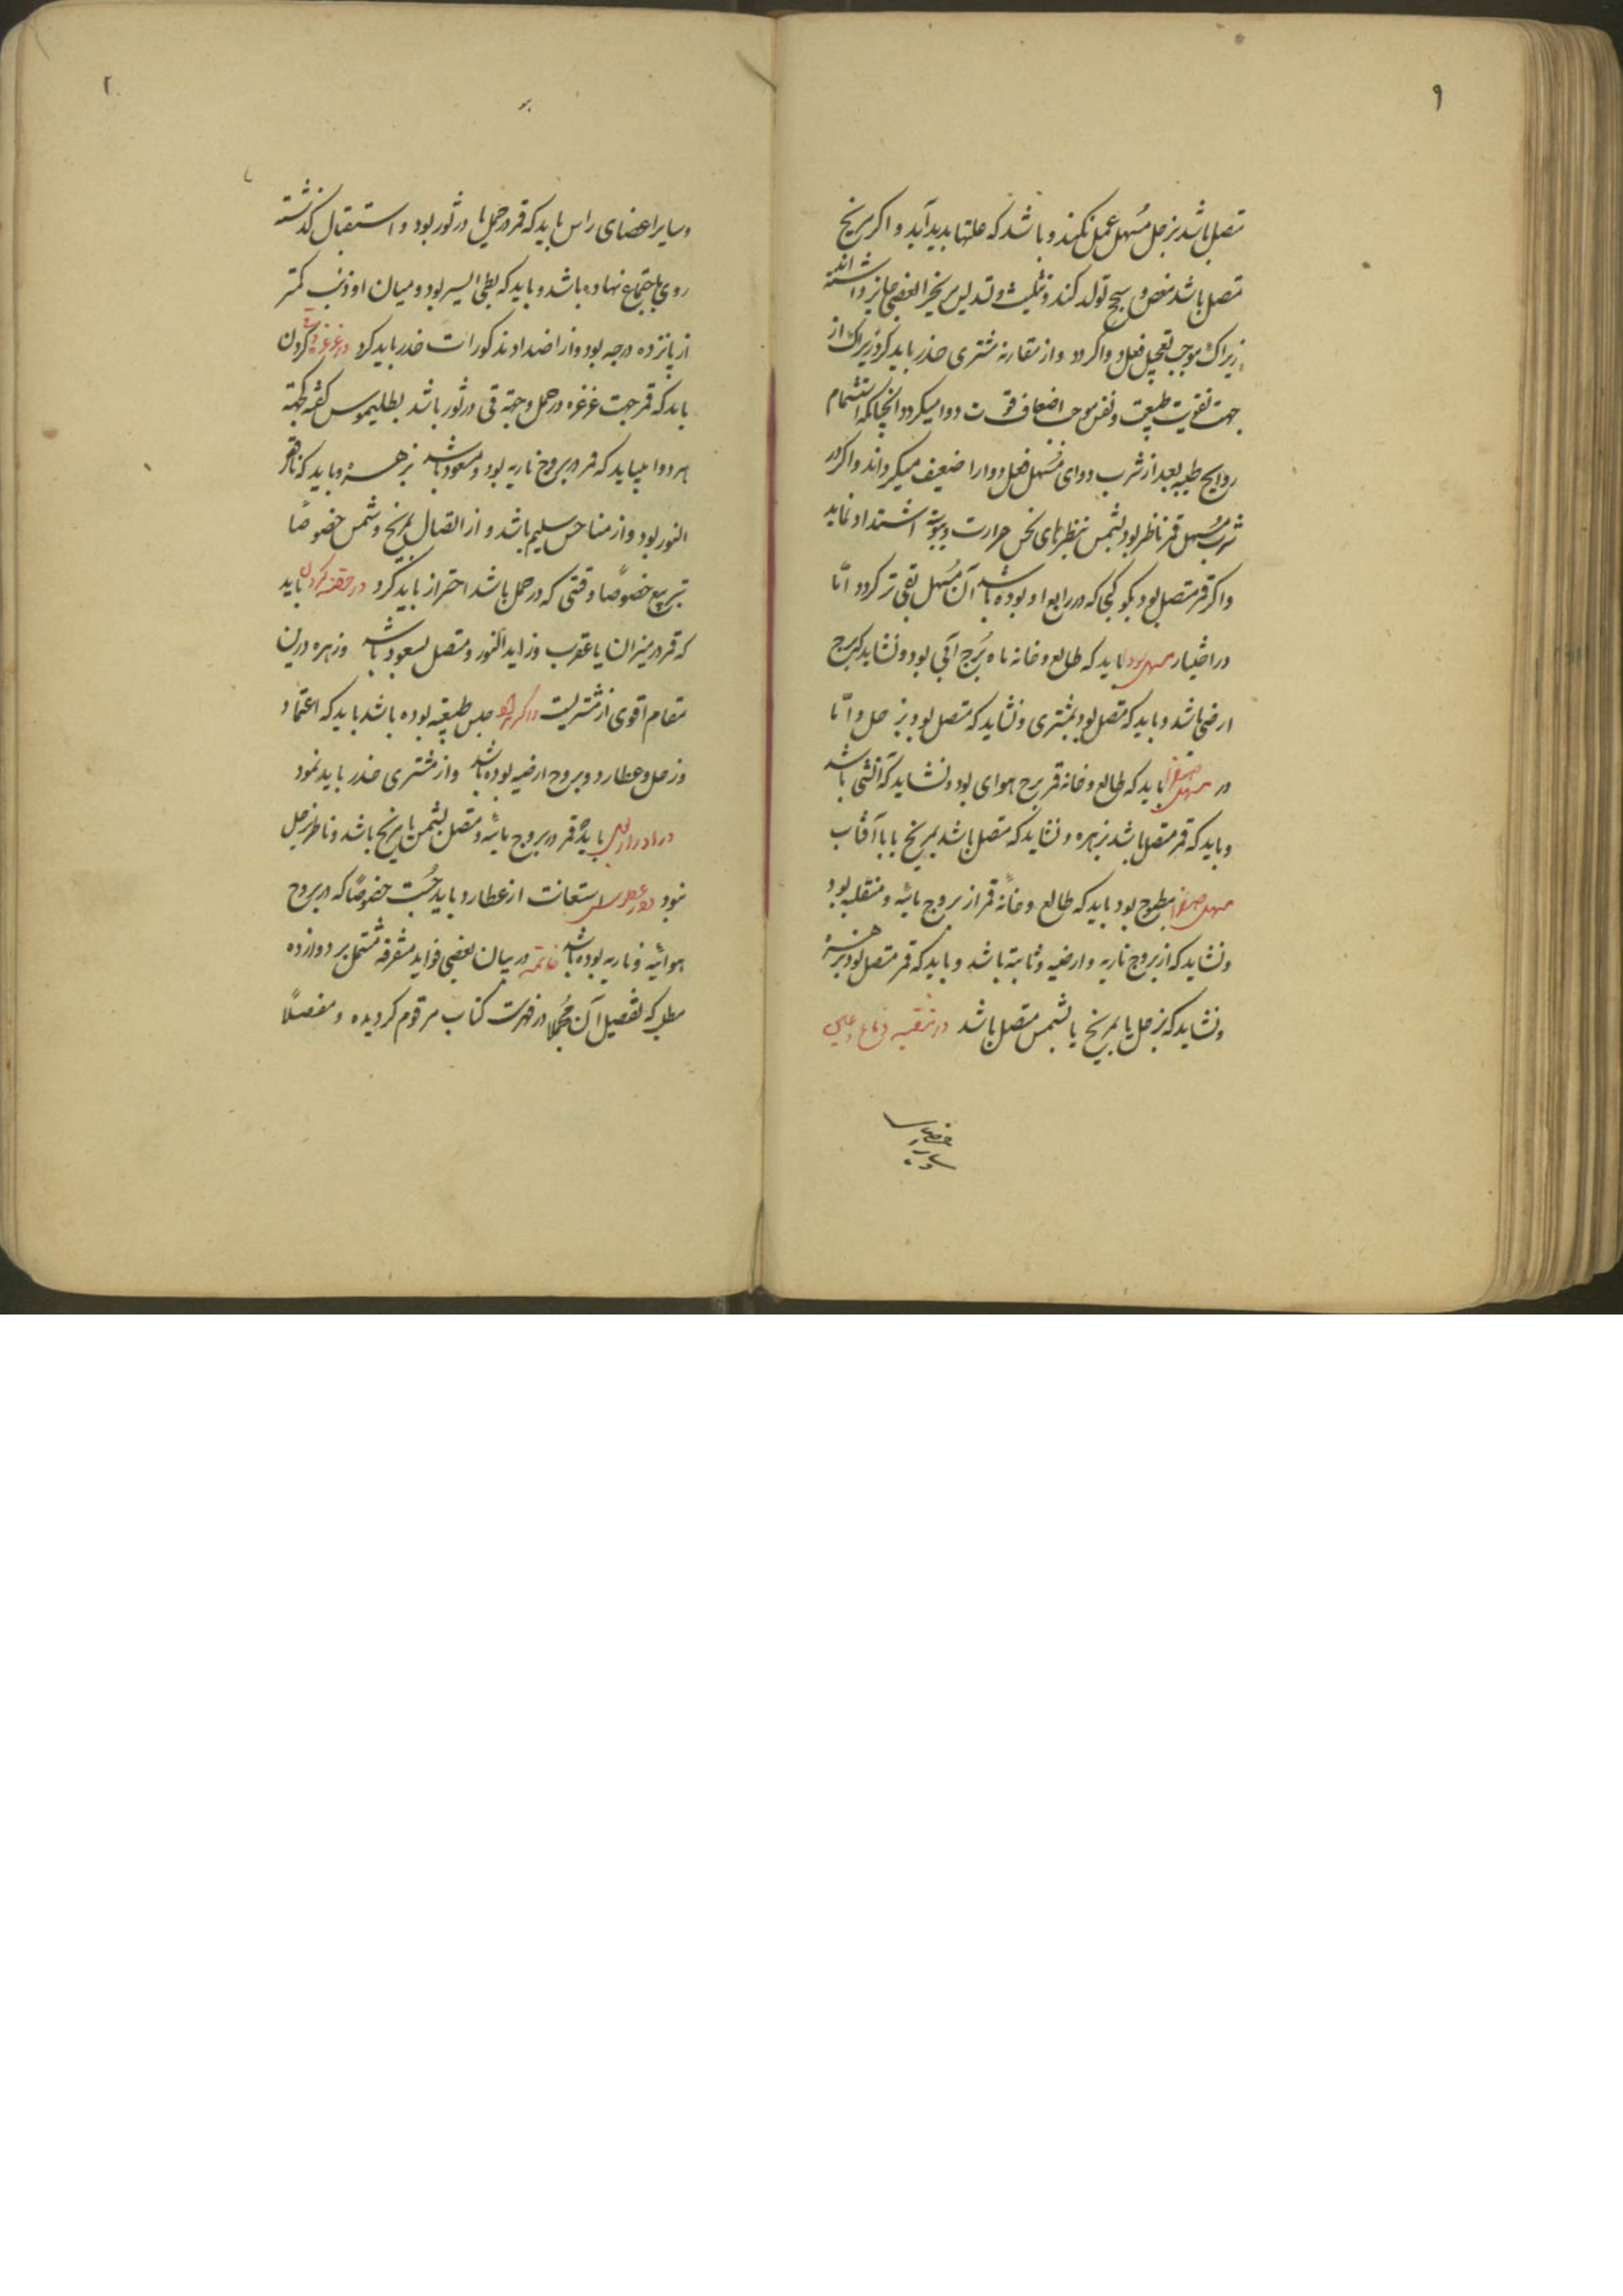 ۹
متصل باشد بزحل مسهل عمل نکند و باشد که علتها بدید آید و اکر بمریخ
متصل باشد مغص و سحج تولد کند و تثلیث و تسدیس مریخرا بعضی جایز داشته اند
زیراک موجب تعجیل فعل دوا کردد و از مقارنه مشتری حذر باید کرد زیراک از
جهت تقویت طبیعت و نفس موجب اضعاف قوت دوا میکردد انچنانکه استشمام
روایح طیبه بعد از شرب دوای مسهل فعل دوا را ضعیف میکرداند و اکر در
شرب مسهل قمر ناظر بود بشمس بنظرهای نحس حرارت و یبوست اشتداد نماید
و اکر قمر متصل بود بکوکبی که در رابع او بوده باشد آن مسهل بقی ترکردد امّا
در اختیار مسهل سودا باید که طالع و خانه ماه بُرج آبی بود و نشاید که برج
ارضی باشد و باید که متصل بود بمشتری و نشاید که متصل بود بزحل و امّا
در مسهل صفرا باید که طالع و خانه قمر برج هوای بود و نشاید که آتشی باشد
و باید که قمر متصل باشد بزهره و نشاید که متصل باشد بمریخ یا با آفتاب
مسهل صفرا مطبوخ بود باید که طالع و خانه قمر از بروج مائیه و منقلبه بود
و نشاید که از بروج ناریه و ارضیه و ثابته باشد و باید که قمر متصل بود بزهره
و نشاید که بزحل یا بمریخ یا بشمس متصل باشد در تنقیه دماغ و
و سایر اعضای
و سایر اعضای راس باید که قمر در حمل یا در ثور بود و استقبال کذشته
روی باجتماع نهاده باشد و باید که بطی السیر بود و میان او و ذنب کمتر
از پانزده درجه بود و از اضداد مذکورات حذر باید کرد در غرغره و قی کردن
باید که قمر جهت غرغره در حمل و جهة قی در ثور باشد بطلیموس کفته بجهة
هر دو میباید که قمر در بروج ناریه بود و مسعود باشد بزهره و باید که ناقص
النور بود و از مناحس سلیم باشد و از اتصال بمریخ و شمس خصوصًا
تربیع خصوصًا وقتی که در حمل باشد احتراز باید کرد در حقنه کردن باید
که قمر در میزان یا عقرب و زاید النور و متصل بسعود باشد و زهره درین
مقام اقوی از مشتریست حبس طبیعة بوده باشد باید که اعتماد
و زحل و عطارد و بروج ارضیه بوده باشد و از مشتری حذر باید نمود
در ادرار بول باید که قمر در بروج مائیه و متصل بشمس یا بمریخ باشد و ناظر بزحل
نبود استعانت از عطارد باید جُست خصوصًا که در بروج
هوائیه و ناریه بوده باشد خاتمه در بیان بعضی فواید متفرقه مشتمل بر دوازده
مطلب که تفصیل آن مجملا در فهرست کتاب مرقوم کردیده و مفصلًا